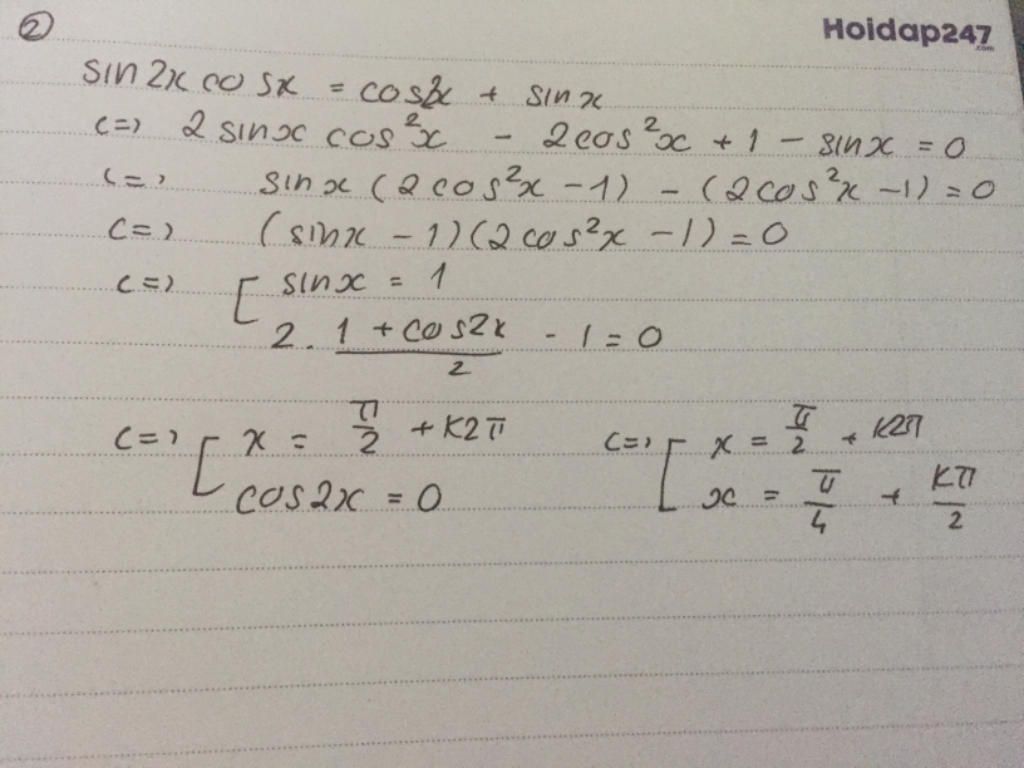 ②
Hoidap247
.com
sin2x cosx = cos2x + sinx
<=> 2 sinx cos²x - 2cos²x + 1 - sinx = 0
<=> sinx (2cos²x - 1) - (2cos²x - 1) = 0
<=> (sinx - 1)(2cos²x - 1) = 0
<=> [ sinx = 1
2 . (1 + cos2x)/2 - 1 = 0
<=> [ x = π/2 + K2π <=> [ x = π/2 + K2π
cos2x = 0 x = π/4 + Kπ/2